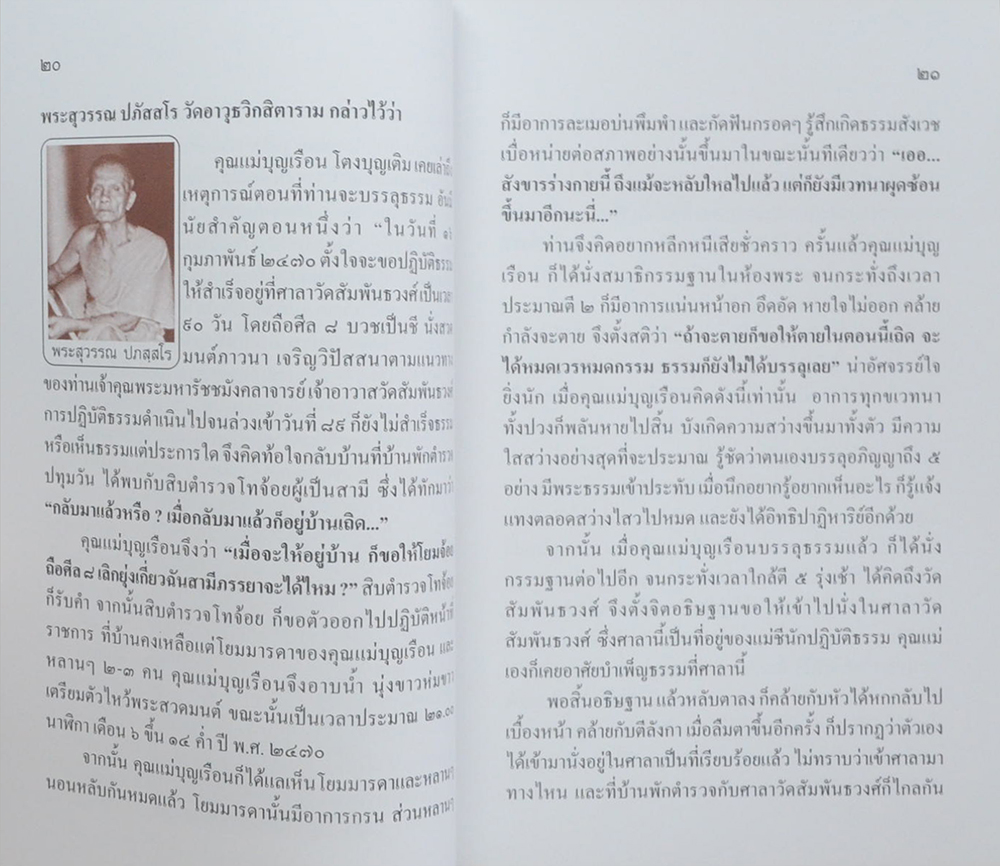 ๒๐
พระสุวรรณ ปภัสสโร วัดอาวุธวิกสิตาราม กล่าวไว้ว่า
คุณแม่บุญเรือน โตงบุญเติม เคยเล่าถึง
เหตุการณ์ตอนที่ท่านจะบรรลุธรรม อันมี
นัยสำคัญตอนหนึ่งว่า “ในวันที่
กุมภาพันธ์ ๒๔๗๐ ตั้งใจจะขอปฏิบัติธรรม
ให้สำเร็จอยู่ที่ศาลาวัดสัมพันธวงศ์เป็นเวลา
๙๐ วัน โดยถือศีล ๘ บวชเป็นชี นั่งสวด
มนต์ภาวนา เจริญวิปัสสนาตามแนวทาง
พระสุวรรณ ปภสฺสโร
ของท่านเจ้าคุณพระมหารัชชมังคลาจารย์ เจ้าอาวาสวัดสัมพันธวงศ์
การปฏิบัติธรรมดำเนินไปจนล่วงเข้าวันที่ ๘๙ ก็ยังไม่สำเร็จธรรม
หรือเห็นธรรมแต่ประการใด จึงคิดท้อใจกลับบ้านที่บ้านพักตำรวจ
ปทุมวัน ได้พบกับสิบตำรวจโทจ้อยผู้เป็นสามี ซึ่งได้ทักมาว่า
“กลับมาแล้วหรือ ? เมื่อกลับมาแล้วก็อยู่บ้านเถิด...”
คุณแม่บุญเรือนจึงว่า “เมื่อจะให้อยู่บ้าน ก็ขอให้โยมจ้อย
ถือศีล ๘ เลิกยุ่งเกี่ยวฉันสามีภรรยาจะได้ไหม ?” สิบตำรวจโทจ้อย
ก็รับคำ จากนั้นสิบตำรวจโทจ้อย ก็ขอตัวออกไปปฏิบัติหน้าที่
ราชการ ที่บ้านคงเหลือแต่โยมมารดาของคุณแม่บุญเรือน และ
หลานๆ ๒-๓ คน คุณแม่บุญเรือนจึงอาบน้ำ นุ่งขาวห่มขาว
เตรียมตัวไหว้พระสวดมนต์ ขณะนั้นเป็นเวลาประมาณ ๒๑.๐๐
นาฬิกา เดือน ๖ ขึ้น ๑๔ ค่ำ ปี พ.ศ. ๒๔๗๐
จากนั้น คุณแม่บุญเรือนก็ได้แลเห็นโยมมารดาและหลานๆ
นอนหลับกันหมดแล้ว โยมมารดานั้นมีอาการกรน ส่วนหลานๆ
๒๑
ก็มีอาการละเมอบ่นพึมพำ และกัดฟันกรอดๆ รู้สึกเกิดธรรมสังเวช
เบื่อหน่ายต่อสภาพอย่างนั้นขึ้นมาในขณะนั้นทีเดียวว่า “เออ...
สังขารร่างกายนี้ ถึงแม้จะหลับใหลไปแล้ว แต่ก็ยังมีเวทนาผุดซ้อน
ขึ้นมาอีกนะนี่...”
ท่านจึงคิดอยากหลีกหนีเสียชั่วคราว ครั้นแล้วคุณแม่บุญ
เรือน ก็ได้นั่งสมาธิกรรมฐานในห้องพระ จนกระทั่งถึงเวลา
ประมาณตี ๒ ก็มีอาการแน่นหน้าอก อึดอัด หายใจไม่ออก คล้าย
กำลังจะตาย จึงตั้งสติว่า “ถ้าจะตายก็ขอให้ตายในตอนนี้เถิด จะ
ได้หมดเวรหมดกรรม ธรรมก็ยังไม่ได้บรรลุเลย” น่าอัศจรรย์ใจ
ยิ่งนัก เมื่อคุณแม่บุญเรือนคิดดังนี้เท่านั้น อาการทุกขเวทนา
ทั้งปวงก็พลันหายไปสิ้น บังเกิดความสว่างขึ้นมาทั้งตัว มีความ
ใสสว่างอย่างสุดที่จะประมาณ รู้ชัดว่าตนเองบรรลุอภิญญาถึง ๕
อย่าง มีพระธรรมเข้าประทับ เมื่อนึกอยากรู้อยากเห็นอะไร ก็รู้แจ้ง
แทงตลอดสว่างไสวไปหมด และยังได้อิทธิปาฏิหาริย์อีกด้วย
จากนั้น เมื่อคุณแม่บุญเรือนบรรลุธรรมแล้ว ก็ได้นั่ง
กรรมฐานต่อไปอีก จนกระทั่งเวลาใกล้ตี ๕ รุ่งเช้า ได้คิดถึงวัด
สัมพันธวงศ์ จึงตั้งจิตอธิษฐานขอให้เข้าไปนั่งในศาลาวัด
สัมพันธวงศ์ ซึ่งศาลานี้เป็นที่อยู่ของแม่ชีนักปฏิบัติธรรม คุณแม่
เองก็เคยอาศัยบำเพ็ญธรรมที่ศาลานี้
พอสิ้นอธิษฐาน แล้วหลับตาลง ก็คล้ายกับหัวได้หกกลับไป
เบื้องหน้า คล้ายกับตีลังกา เมื่อลืมตาขึ้นอีกครั้ง ก็ปรากฏว่าตัวเอง
ได้เข้ามานั่งอยู่ในศาลาเป็นที่เรียบร้อยแล้ว ไม่ทราบว่าเข้าศาลามา
ทางไหน และที่บ้านพักตำรวจกับศาลาวัดสัมพันธวงศ์ก็ไกลกัน